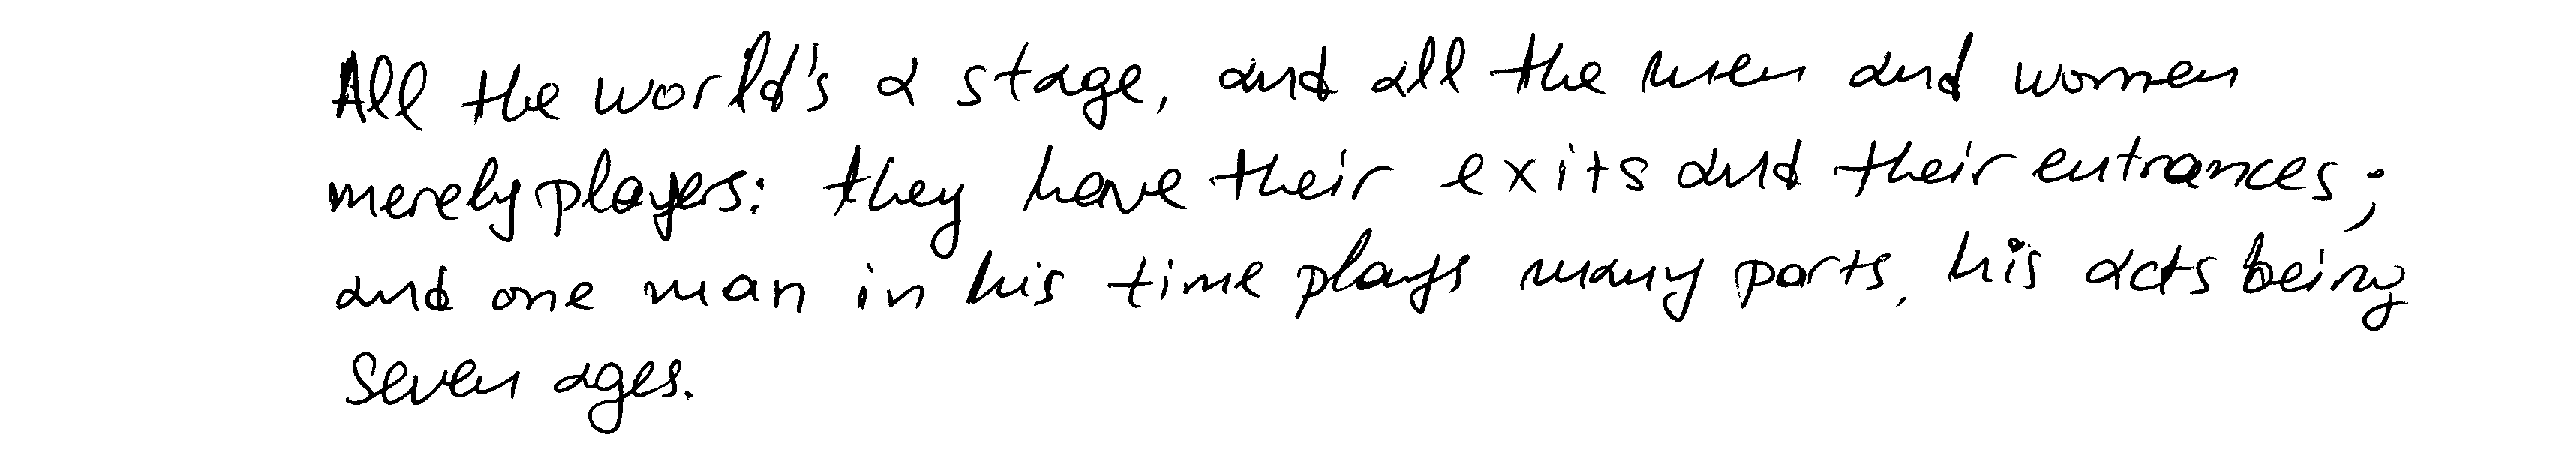 All the world's a stage, and all the men and women
merely players: they have their exits and their entrances;
and one man in his time plays many parts, his acts being
seven ages.